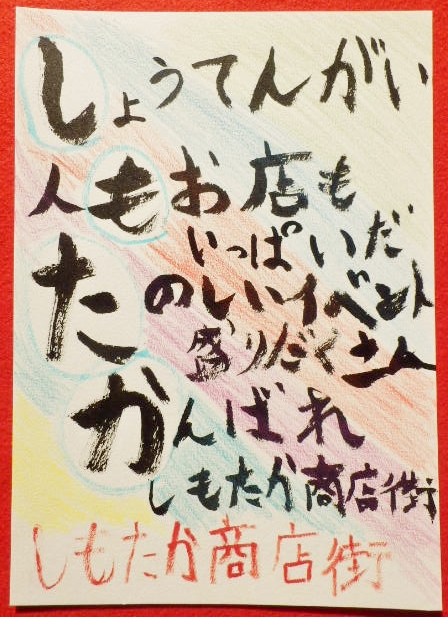 しょうてんがい
人もお店も
いっぱいだ
たのしいイベント
盛りだくさん
がんばれ
しもたか商店街
しもたか商店街